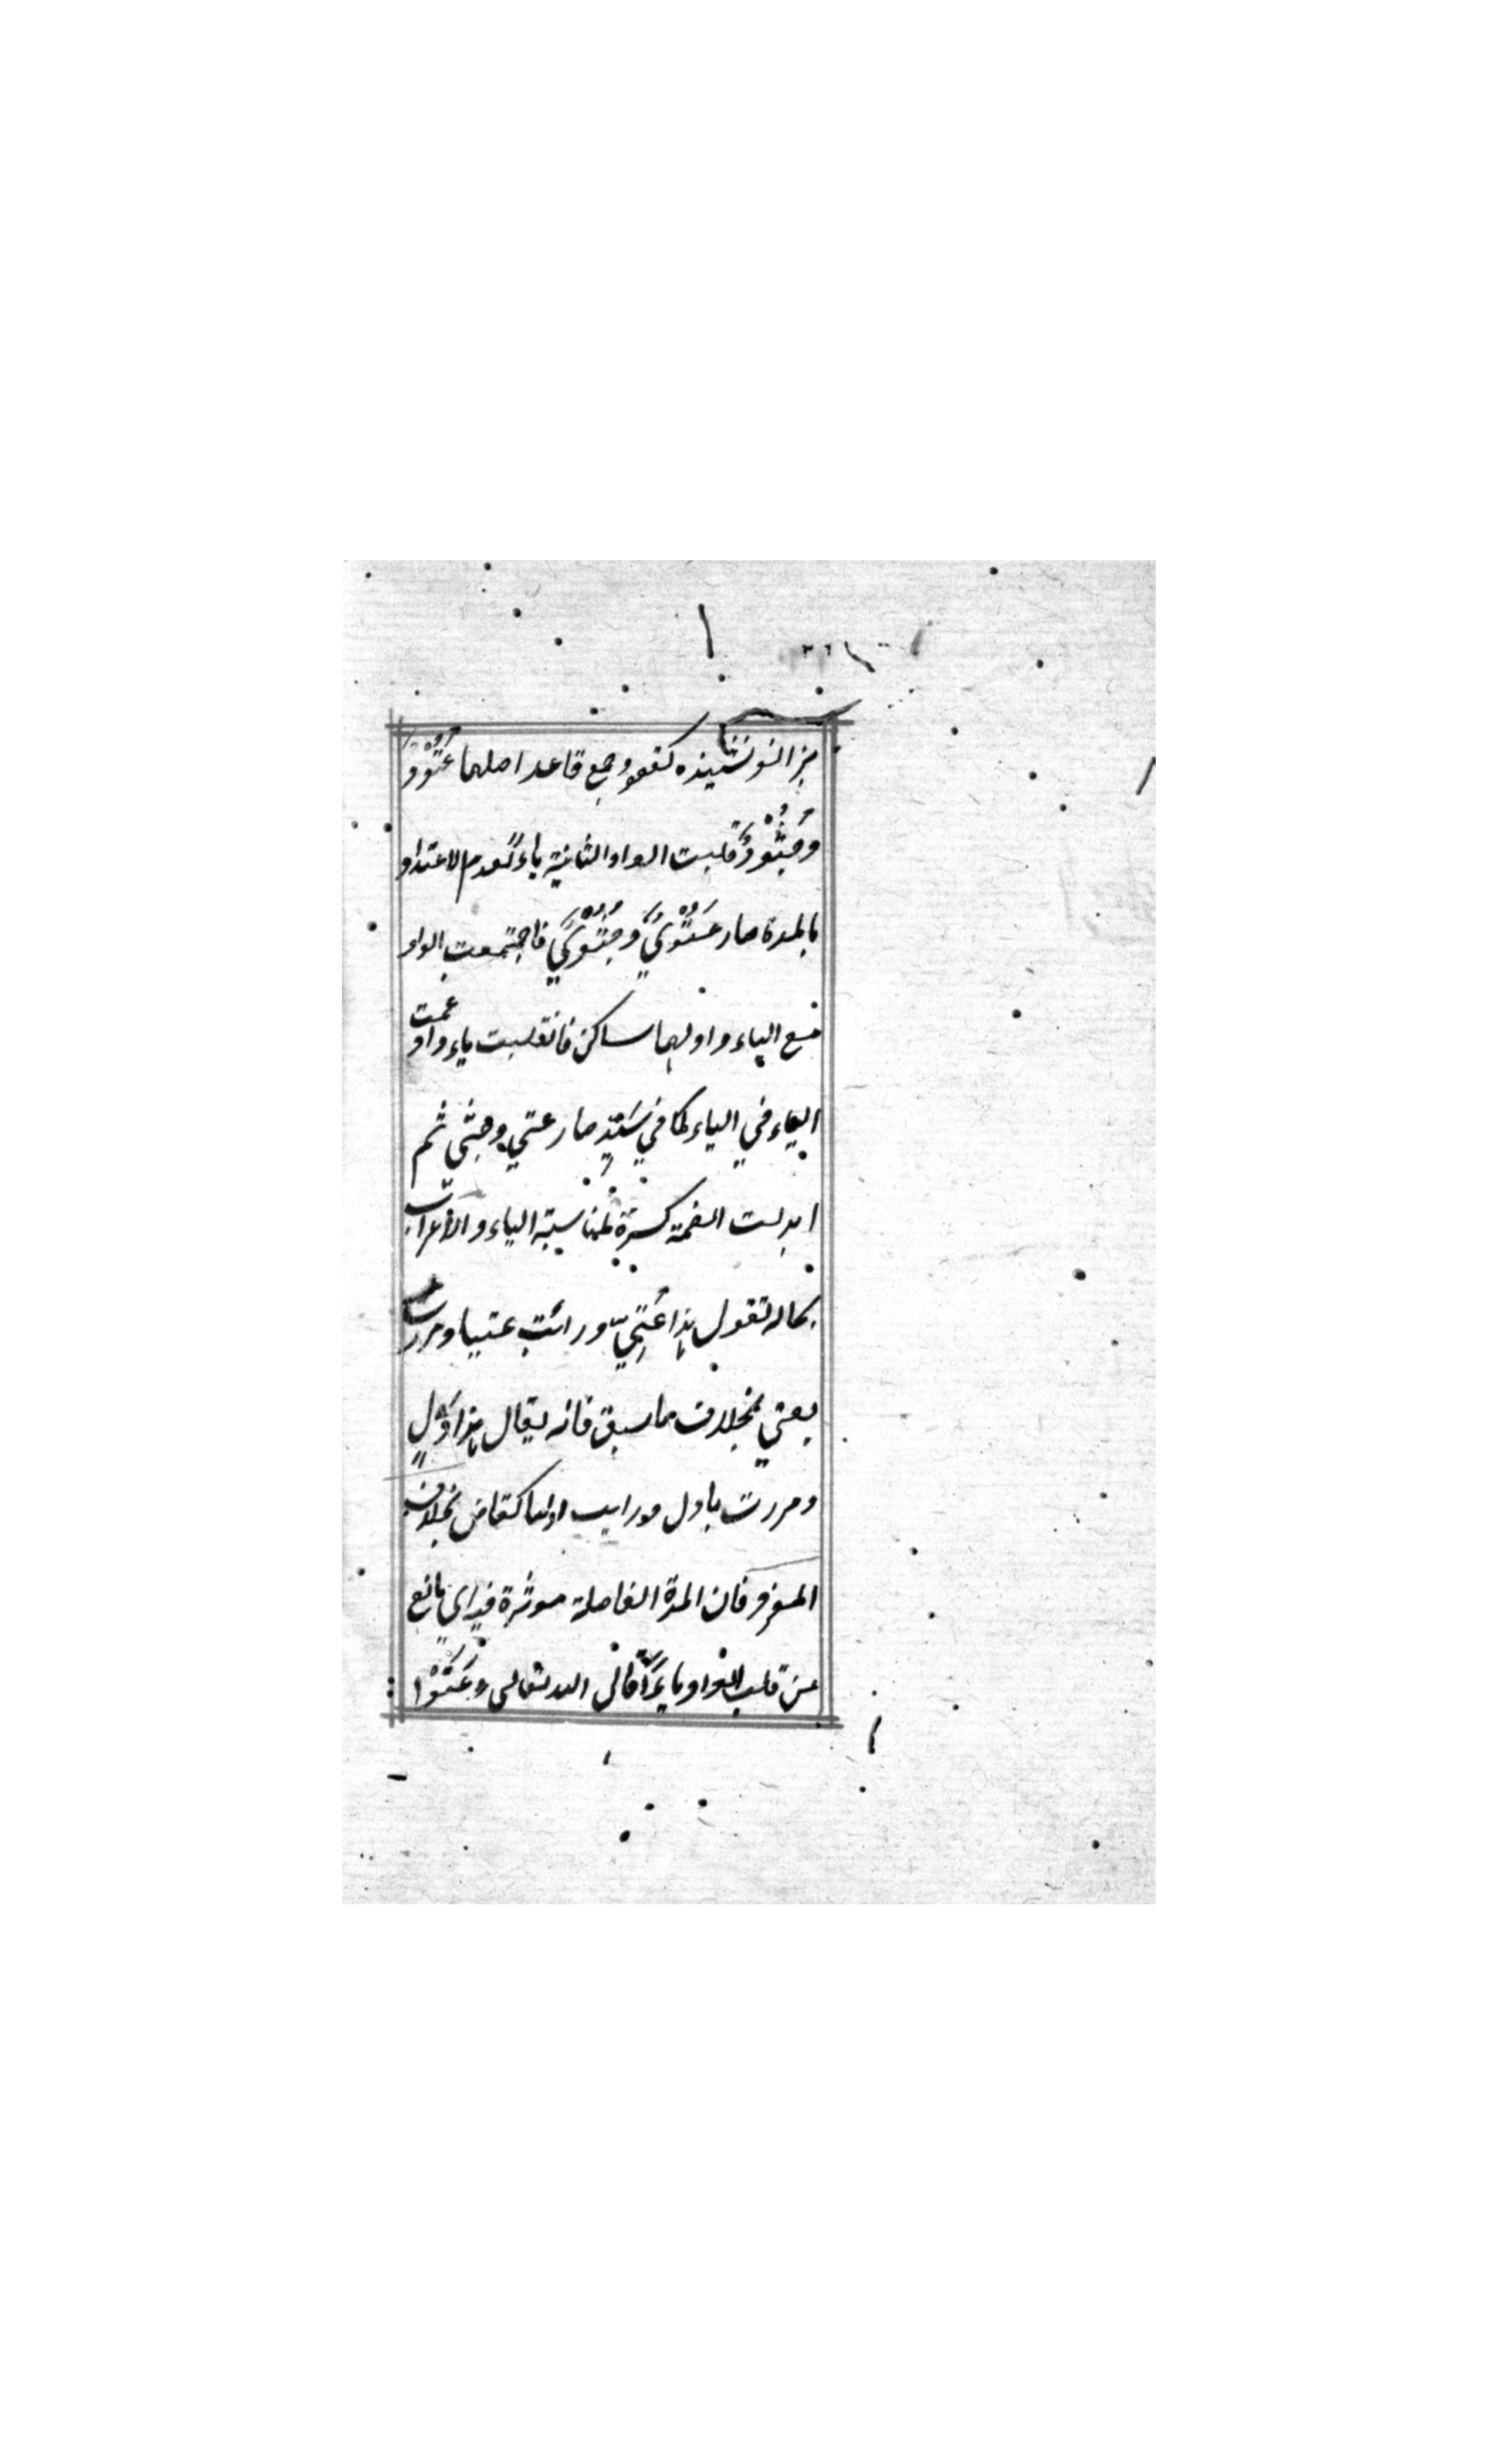 بزانو نشیننده كقعود جمع قاعد اصلهما عُتُوْوٌ
وَجُثُوْوٌ قلبت الواو الثانية ياءً لعدم الاعتداد
بالمدة صار عُتُوْيٌ وجُثُوْيٌ فاجتمعت الواو
مع الياء واولهما ساكن فانقلبت ياء وادغمت
الياء في الياء كما في سَيّدٍ صار عتي وجثي ثم
ابدلت الضمة كسرة لمناسبة الياء والاعراب
بحاله تقول هذا عُتِيٌّ ورائت عتيا ومررت
يعني بخلاف ما سبق فانه يقال هذا اَدْلٍ
ومررت بادل ورايت ادليا كقاض بخلاف
المفرد فان المدة الفاصلة موثرة فيه اي مانع
عن قلب الواو ياءً قال الله تعالى وَعَتَوْا